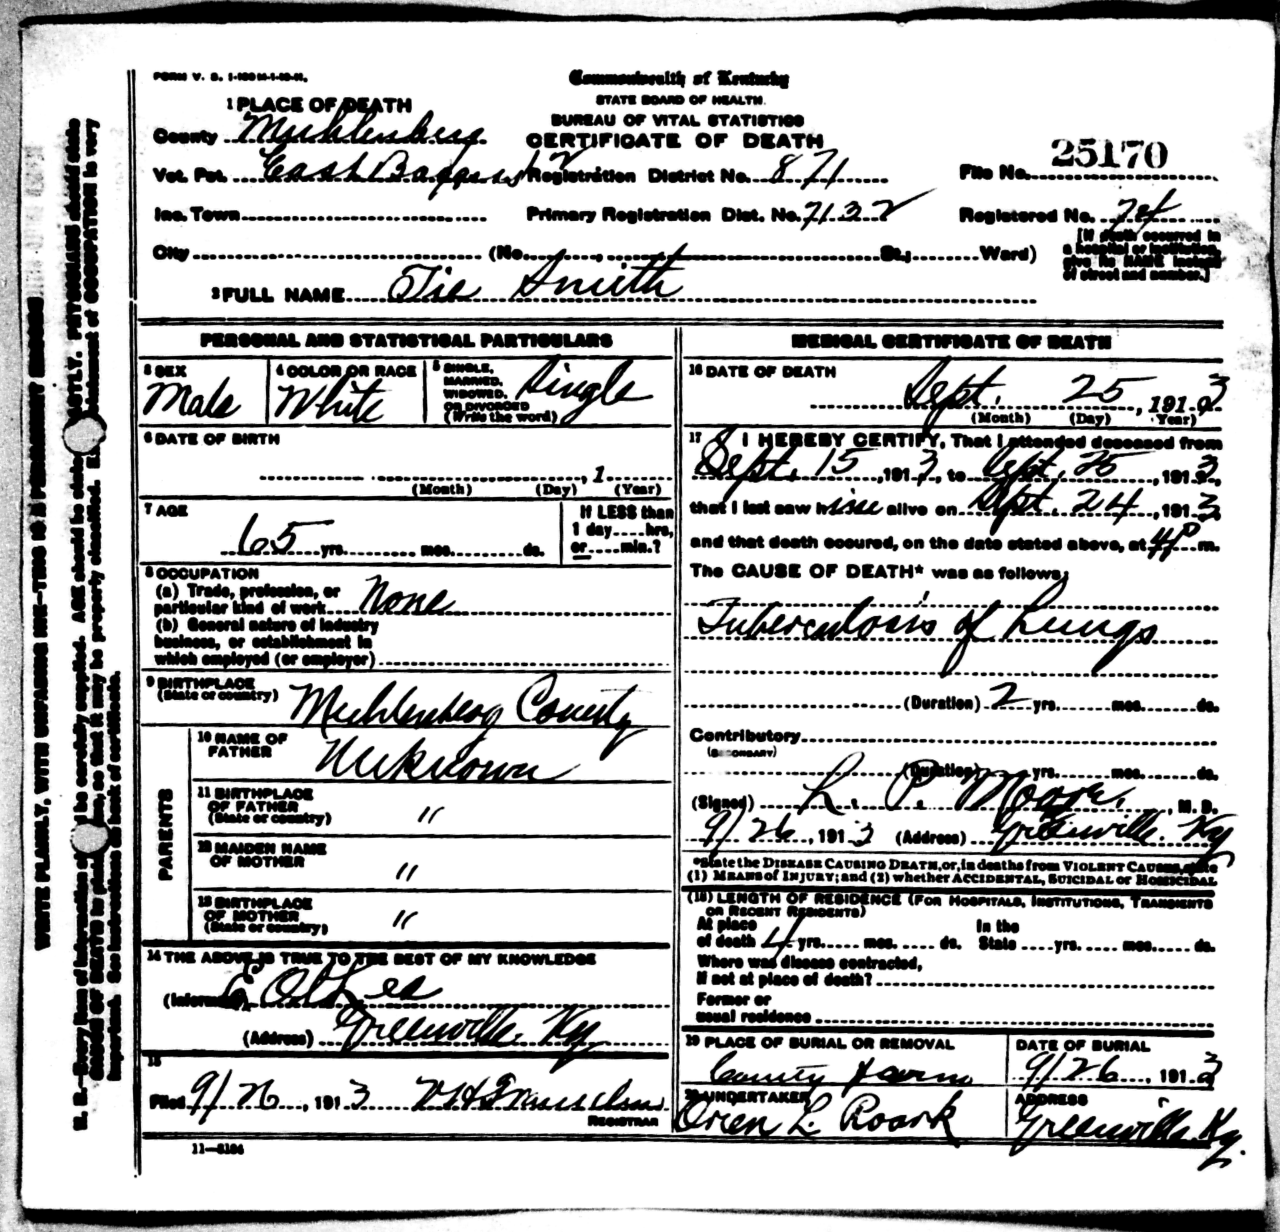 FORM V. S. 1-
Commonwealth of Kentucky
STATE BOARD OF HEALTH.
BUREAU OF VITAL STATISTICS
CERTIFICATE OF DEATH
1 PLACE OF DEATH
County Muhlenberg
Vot. Pct. East Registration District No. 871
File No. 25170
Inc. Town Primary Registration Dist. No. 7132
Registered No. 74
City (No. , St.; Ward)
[If death occurred in
a hospital or institution,
give its NAME instead
of street and number.]
2 FULL NAME Tie Smith
PERSONAL AND STATISTICAL PARTICULARS
3 SEX
Male
4 COLOR OR RACE
White
5 SINGLE,
MARRIED,
WIDOWED,
OR DIVORCED
(Write the word)
Single
6 DATE OF BIRTH
, 1
(Month) (Day) (Year)
7 AGE
65 yrs. mos. ds.
If LESS than
1 day hrs,
or min.?
8 OCCUPATION
(a) Trade, profession, or
particular kind of work None
(b) General nature of industry
business, or establishment in
which employed (or employer)
9 BIRTHPLACE
(State or country) Muhlenberg County
PARENTS
10 NAME OF
FATHER Unknown
11 BIRTHPLACE
OF FATHER
(State or country) "
12 MAIDEN NAME
OF MOTHER "
13 BIRTHPLACE
OF MOTHER
(State or country) "
14 THE ABOVE IS TRUE TO THE BEST OF MY KNOWLEDGE
(Informant)
(Address) Greenville. Ky
15
Filed 9/26, 1913
REGISTRAR
11—5184
MEDICAL CERTIFICATE OF DEATH
16 DATE OF DEATH
Sept. 25, 1913
(Month) (Day) (Year)
17 I HEREBY CERTIFY, That I attended deceased from
Sept. 15, 1913, to Sept. 25, 1913,
that I last saw him alive on Sept. 24, 1913,
and that death occured, on the date stated above, at 4P m.
The CAUSE OF DEATH* was as follows;
Tuberculosis of Lungs
(Duration) 2 yrs. mos. ds.
Contributory
(SECONDARY)
(Duration) yrs. mos. ds.
(Signed) L. P. Moore, M. D.
9/26, 1913 (Address) Greenville. Ky
*State the DISEASE CAUSING DEATH, or, in deaths from VIOLENT CAUSES, state
(1) MEANS of INJURY; and (2) whether ACCIDENTAL, SUICIDAL or HOMICIDAL
(18) LENGTH OF RESIDENCE (FOR HOSPITALS, INSTITUTIONS, TRANSIENTS
OR RECENT RESIDENTS)
At place In the
of death 4 yrs. mos. ds. State yrs. mos. ds.
Where was disease contracted,
if not at place of death?
Former or
usual residence
19 PLACE OF BURIAL OR REMOVAL
County Farm
DATE OF BURIAL
9/26, 1913
20 UNDERTAKER
Oren L. Roark
ADDRESS
Greenville. Ky.
WRITE PLAINLY, WITH UNFADING INK—THIS IS A PERMANENT RECORD